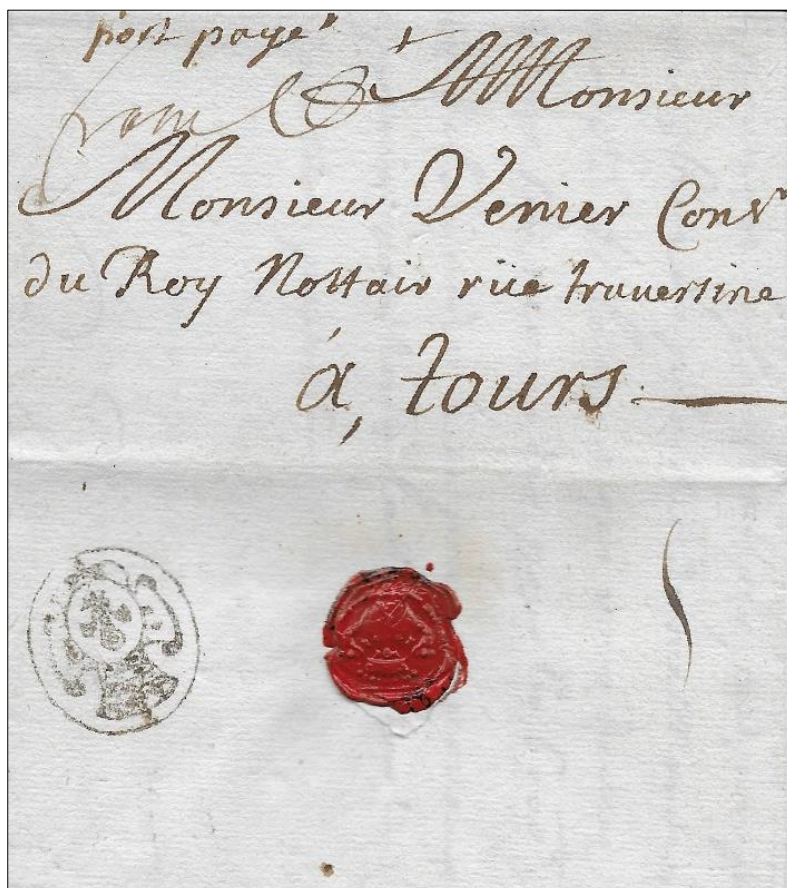 port payé
Monsieur
Monsieur Venier Con.r
du Roy Nottair rüe traversine
á, tours